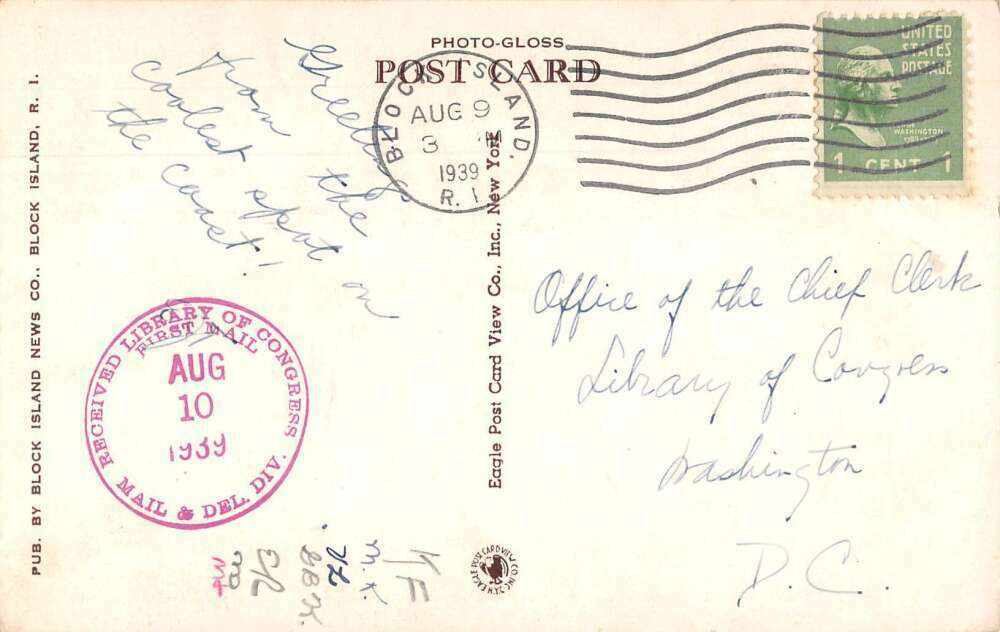 PHOTO-GLOSS
POST CARD
BLOCK ISLAND.
AUG 9
3
1939
R. I.
UNITED
STATES
POSTAGE
WASHINGTON
1 CENT 1
Greetings
from the
coolest spot on
the coast!
Office of the Chief Clerk
Library of Congress
Washington
D. C.
RECEIVED LIBRARY OF CONGRESS
FIRST MAIL
AUG
10
1939
MAIL & DEL. DIV.
PUB. BY BLOCK ISLAND NEWS CO., BLOCK ISLAND, R. I.
Eagle Post Card View Co., Inc., New York
EAGLE POST CARD VIEW CO. INC. N.Y.
KF
M.K.